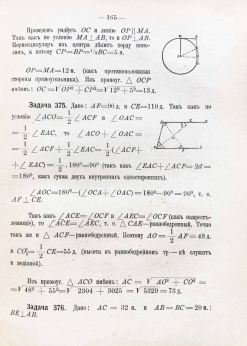 — 165 —
Проведемъ радіусъ OC и линію OP ∥ MA.
Такъ какъ по условію MA⊥AB, то и OP⊥AB.
Перпендикуляръ изъ центра дѣлитъ хорду попо-
ламъ, а потому CP=BP=½BC=5 м.
OP=MA=12 м. (какъ противоположная
сторона прямоугольника). Изъ прямоуг. △ OCP
имѣемъ: OC=√OP²+CP²=√12²+5²=13 д.
Задача 375. Дано: AF=96 д. и CE=110 д. (такъ какъ по
условію ∠ACO= 1/2 ∠ ACF и ∠OAC =
= 1/2 ∠ EAC, то ∠ACO + ∠OAC =
= 1/2 ∠ ACF+ 1/2 ∠EAC= 1/2 (∠ACF+
+ ∠ EAC) = 1/2 .180°=90° (такъ какъ ∠EAC+∠ACF= 2d=
=180°, какъ сумма двухъ внутреннихъ односторонихъ).
∠AOC=180°—(∠OCA+∠OAC)=180°—90°=90°, т. е.
AF⊥CE.
Такъ какъ ∠ACE=∠OCF и ∠AEC=∠OCF (какъ накрестъ-
лежащіе), то ∠ACE=∠AEC, т. е. △ CAE—равнобедренный, Точно
такъ же и △ ACF—равнобедренный. Поэтому AO = 1/2 AF = 48 д.
и CO= 1/2 CE=55 д. (высота въ равнобедренномъ тр—кѣ служитъ
и медіаной).
Изъ прямоуг. △ ACO имѣемъ: AC = √AO² + CO² =
=√48² + 55²=√2304 + 3025 =√5329=73 д.
Задача 376. Дано: AC = 32 м. и AB=BC=20 м.;
BE⊥AB.